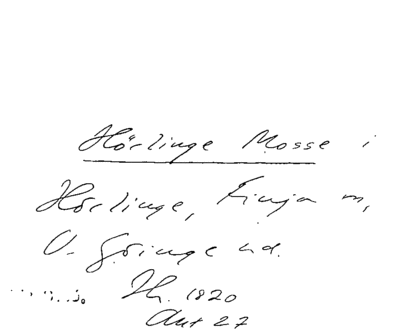 Hörlinge Mosse i
Hörlinge, Finja m,
V. Göinge hd.
Th. 1820
Akt 27